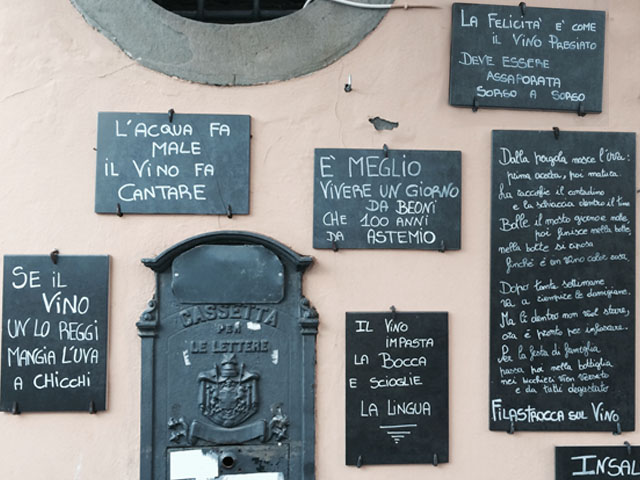 LA FELICITÀ E' COME
IL VINO PREGIATO
DEVE ESSERE
ASSAPORATA
SORSO A SORSO
L'ACQUA FA
MALE
IL VINO FA
CANTARE
È MEGLIO
VIVERE UN GIORNO
DA BEONI
CHE 100 ANNI
DA ASTEMIO
Dalla pergola nasce l'uva:
prima acerba, poi matura
la raccoglie il contadino
e la schiaccia dentro il tino
Bolle il mosto giorno e notte,
poi finisce nella botte,
nella botte si riposa
finché è un vino color rosa.
Dopo tante settimane
va a riempire le damigiane.
Ma lì dentro non vuol stare,
ora è pronto per infiascare.
Per la festa di famiglia
passa poi nella bottiglia
nei bicchieri vien versato
e da tutti degustato
FILASTROCCA SUL VINO
SE IL
VINO
UN LO REGGI
MANGIA L'UVA
A CHICCHI
CASSETTA
PER
LE LETTERE
IL VINO
IMPASTA
LA BOCCA
E SCIOGLIE
LA LINGUA
INSAL